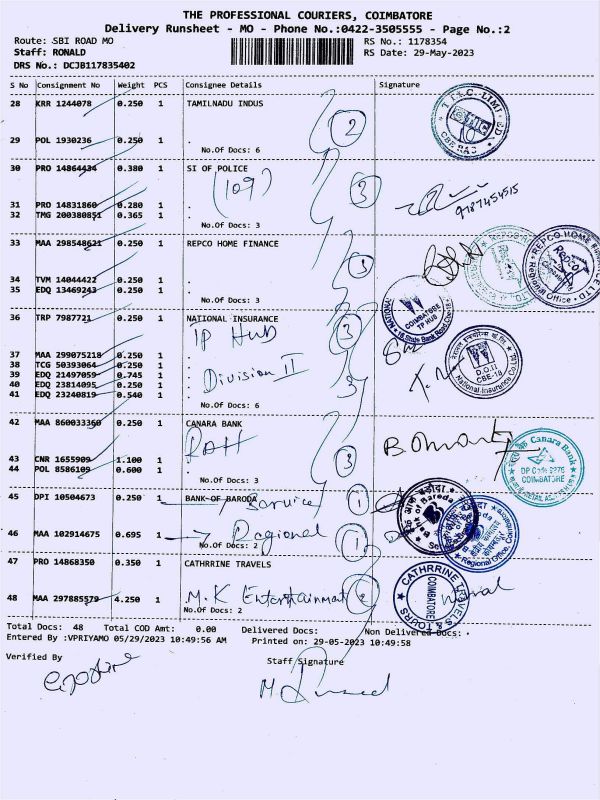 THE PROFESSIONAL COURIERS, COIMBATORE
Delivery Runsheet - MO - Phone No.:0422-3505555 - Page No.:2
Route: SBI ROAD MO
RS No.: 1178354
Staff: RONALD
RS Date: 29-May-2023
DRS No.: DCJB117835402
S No Consignment No Weight PCS Consignee Details Signature
28 KRR 1244078 0.250 1 TAMILNADU INDUS
2
29 POL 1930236 0.250 1 .
No.Of Docs: 6
30 PRO 14864434 0.380 1 SI OF POLICE
(109)
3
31 PRO 14831860 0.280 1 .
32 TMG 200380851 0.365 1 .
No.Of Docs: 3
33 MAA 298548621 0.250 1 REPCO HOME FINANCE
3
34 TVM 14044422 0.250 1 .
35 EDQ 13469243 0.250 1 .
No.Of Docs: 3
36 TRP 7987721 0.250 1 NATIONAL INSURANCE
TP Hub
3
COIMBATORE
TP HUB
37 MAA 299075218 0.250 1 .
38 TCG 50393064 0.250 1 .
39 EDQ 21497059 0.745 1 .
Division II
3
40 EDQ 23814095 0.250 1 .
41 EDQ 23240819 0.540 1 .
No.Of Docs: 6
D.O.II
CBE-18
National Insurance Co.
42 MAA 860033360 0.250 1 CANARA BANK
3
43 CNR 1655909 1.100 1 .
44 POL 8586109 0.600 1 .
No.Of Docs: 3
Canara Bank
COIMBATORE
45 DPI 10504673 0.250 1 BANK OF BARODA
Service 1
46 MAA 102914675 0.695 1 .
Regional 1
No.Of Docs: 2
Bank of Baroda
Regional Office
47 PRO 14868350 0.350 1 CATHRRINE TRAVELS
48 MAA 297885579 4.250 1 M.K Entertainment 2
No.Of Docs: 2
CATHRRINE TRAVELS & TOURS
COIMBATORE
Total Docs: 48 Total COD Amt: 0.00 Delivered Docs: Non Delivered Docs:
Entered By :VPRIYAMO 05/29/2023 10:49:56 AM Printed on: 29-05-2023 10:49:58
Verified By
Staff Signature